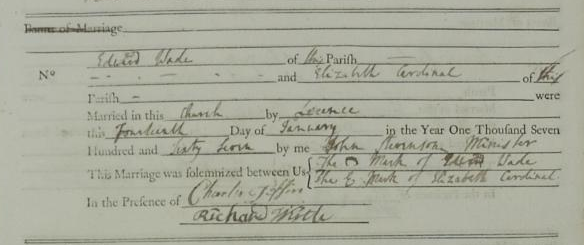 Banns of Marriage
Edward Wade of this Parish
No and Elizabeth Cardinal of this
Parish were
Married in this Church by Licence
this Fourteenth Day of January in the Year One Thousand Seven
Hundred and Sixty Seven by me John Minister
The Mark of Edward Wade
This Marriage was solemnized between Us
The E Mark of Elizabeth Cardinal
In the Presence of Charles
Richard